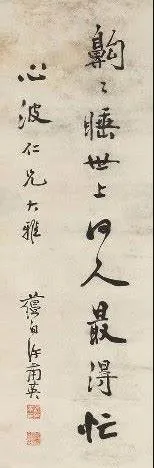 齁〻睡世上何人最得忙
心波仁兄大雅